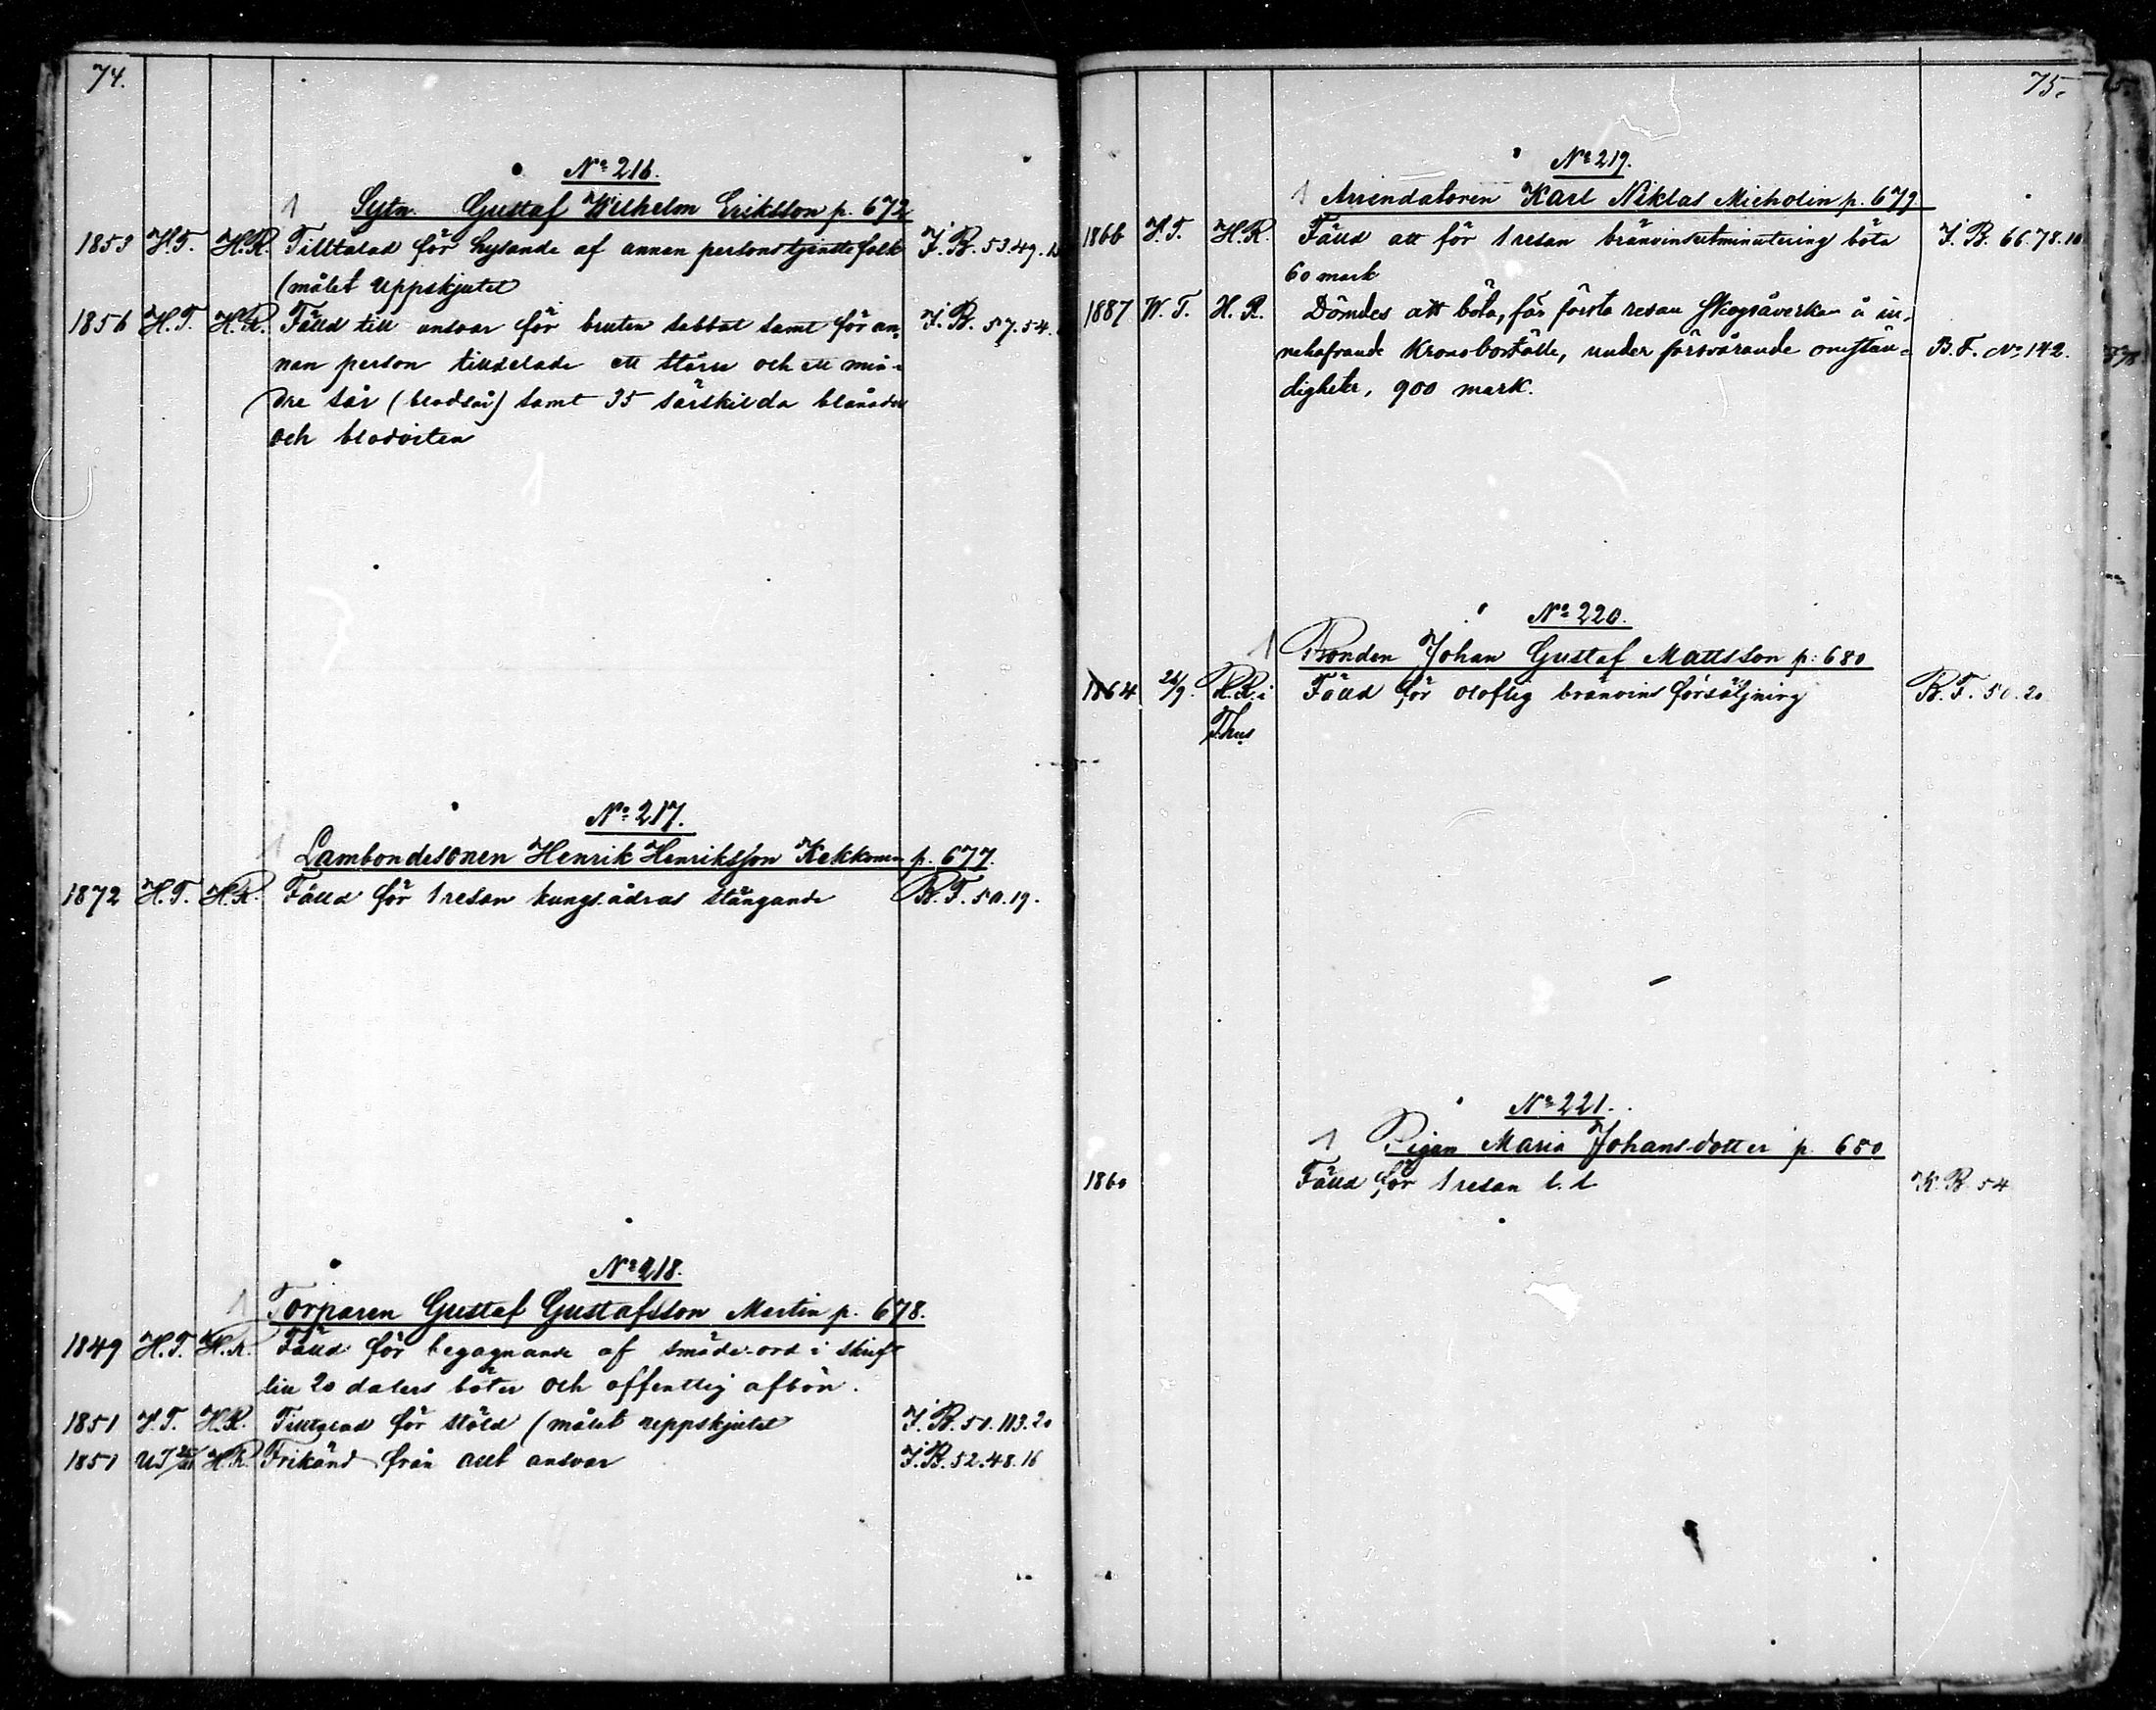 74.
No 216.
1 Sytn. Gustaf Wilhelm Eriksson p. 672
1853 H.T. H.R. Tilltalad för hysande af annan persons tjenstefolk J. B. 53.49.
(målet uppskjutet
1856 H.T. H.R. Fälld till ansvar för bruten sabbat samt för an- J. B. 57.54.
nan person tilldelade ett större och ett min-
dre sår (blodsår) samt 35 särskilda blånader
och blodviten
No 217.
1 Lambondesonen Henrik Henriksson Kekkonen p. 677.
1872 H.T. H.R. Fälld för 1 resan kungsådras stängande B. F. 50.19.
No 218.
1 Torparen Gustaf Gustafsson Martin p. 678.
1849 H.T. H.R. Fälld för begagnande af smäde-ord i skrift
till 20 dalers böter och offentlig afbön.
1851 H.T. H.R. Tilltalad för stöld (målet uppskjutet J. B. 51.113.20
1851 U.T. H.R. Frikänd från allt ansvar J. B. 52.48.16
75.
No 219.
1 Arrendatoren Karl Niklas Micholin p. 679
1866 H.T. H.R. Fälld att för 1 resan bränvinsutminutering böta J. B. 66.78.10
60 mark
1887 W.T. H.R. Dömdes att böta, för första resan skogsåverkan å in-
nehafvande Kronoboställe, under försvårande omstän- B. F. No 142.
digheter, 900 mark.
No 220.
1 Bonden Johan Gustaf Mattsson p. 680
1864 26/9. R.R. i Fälld för oloflig bränvins försäljning B. F. 50.20
Thus
No 221.
1 Pigan Maria Johansdotter p. 680
1860 Fälld för 1 resan l. l. K. B. 54